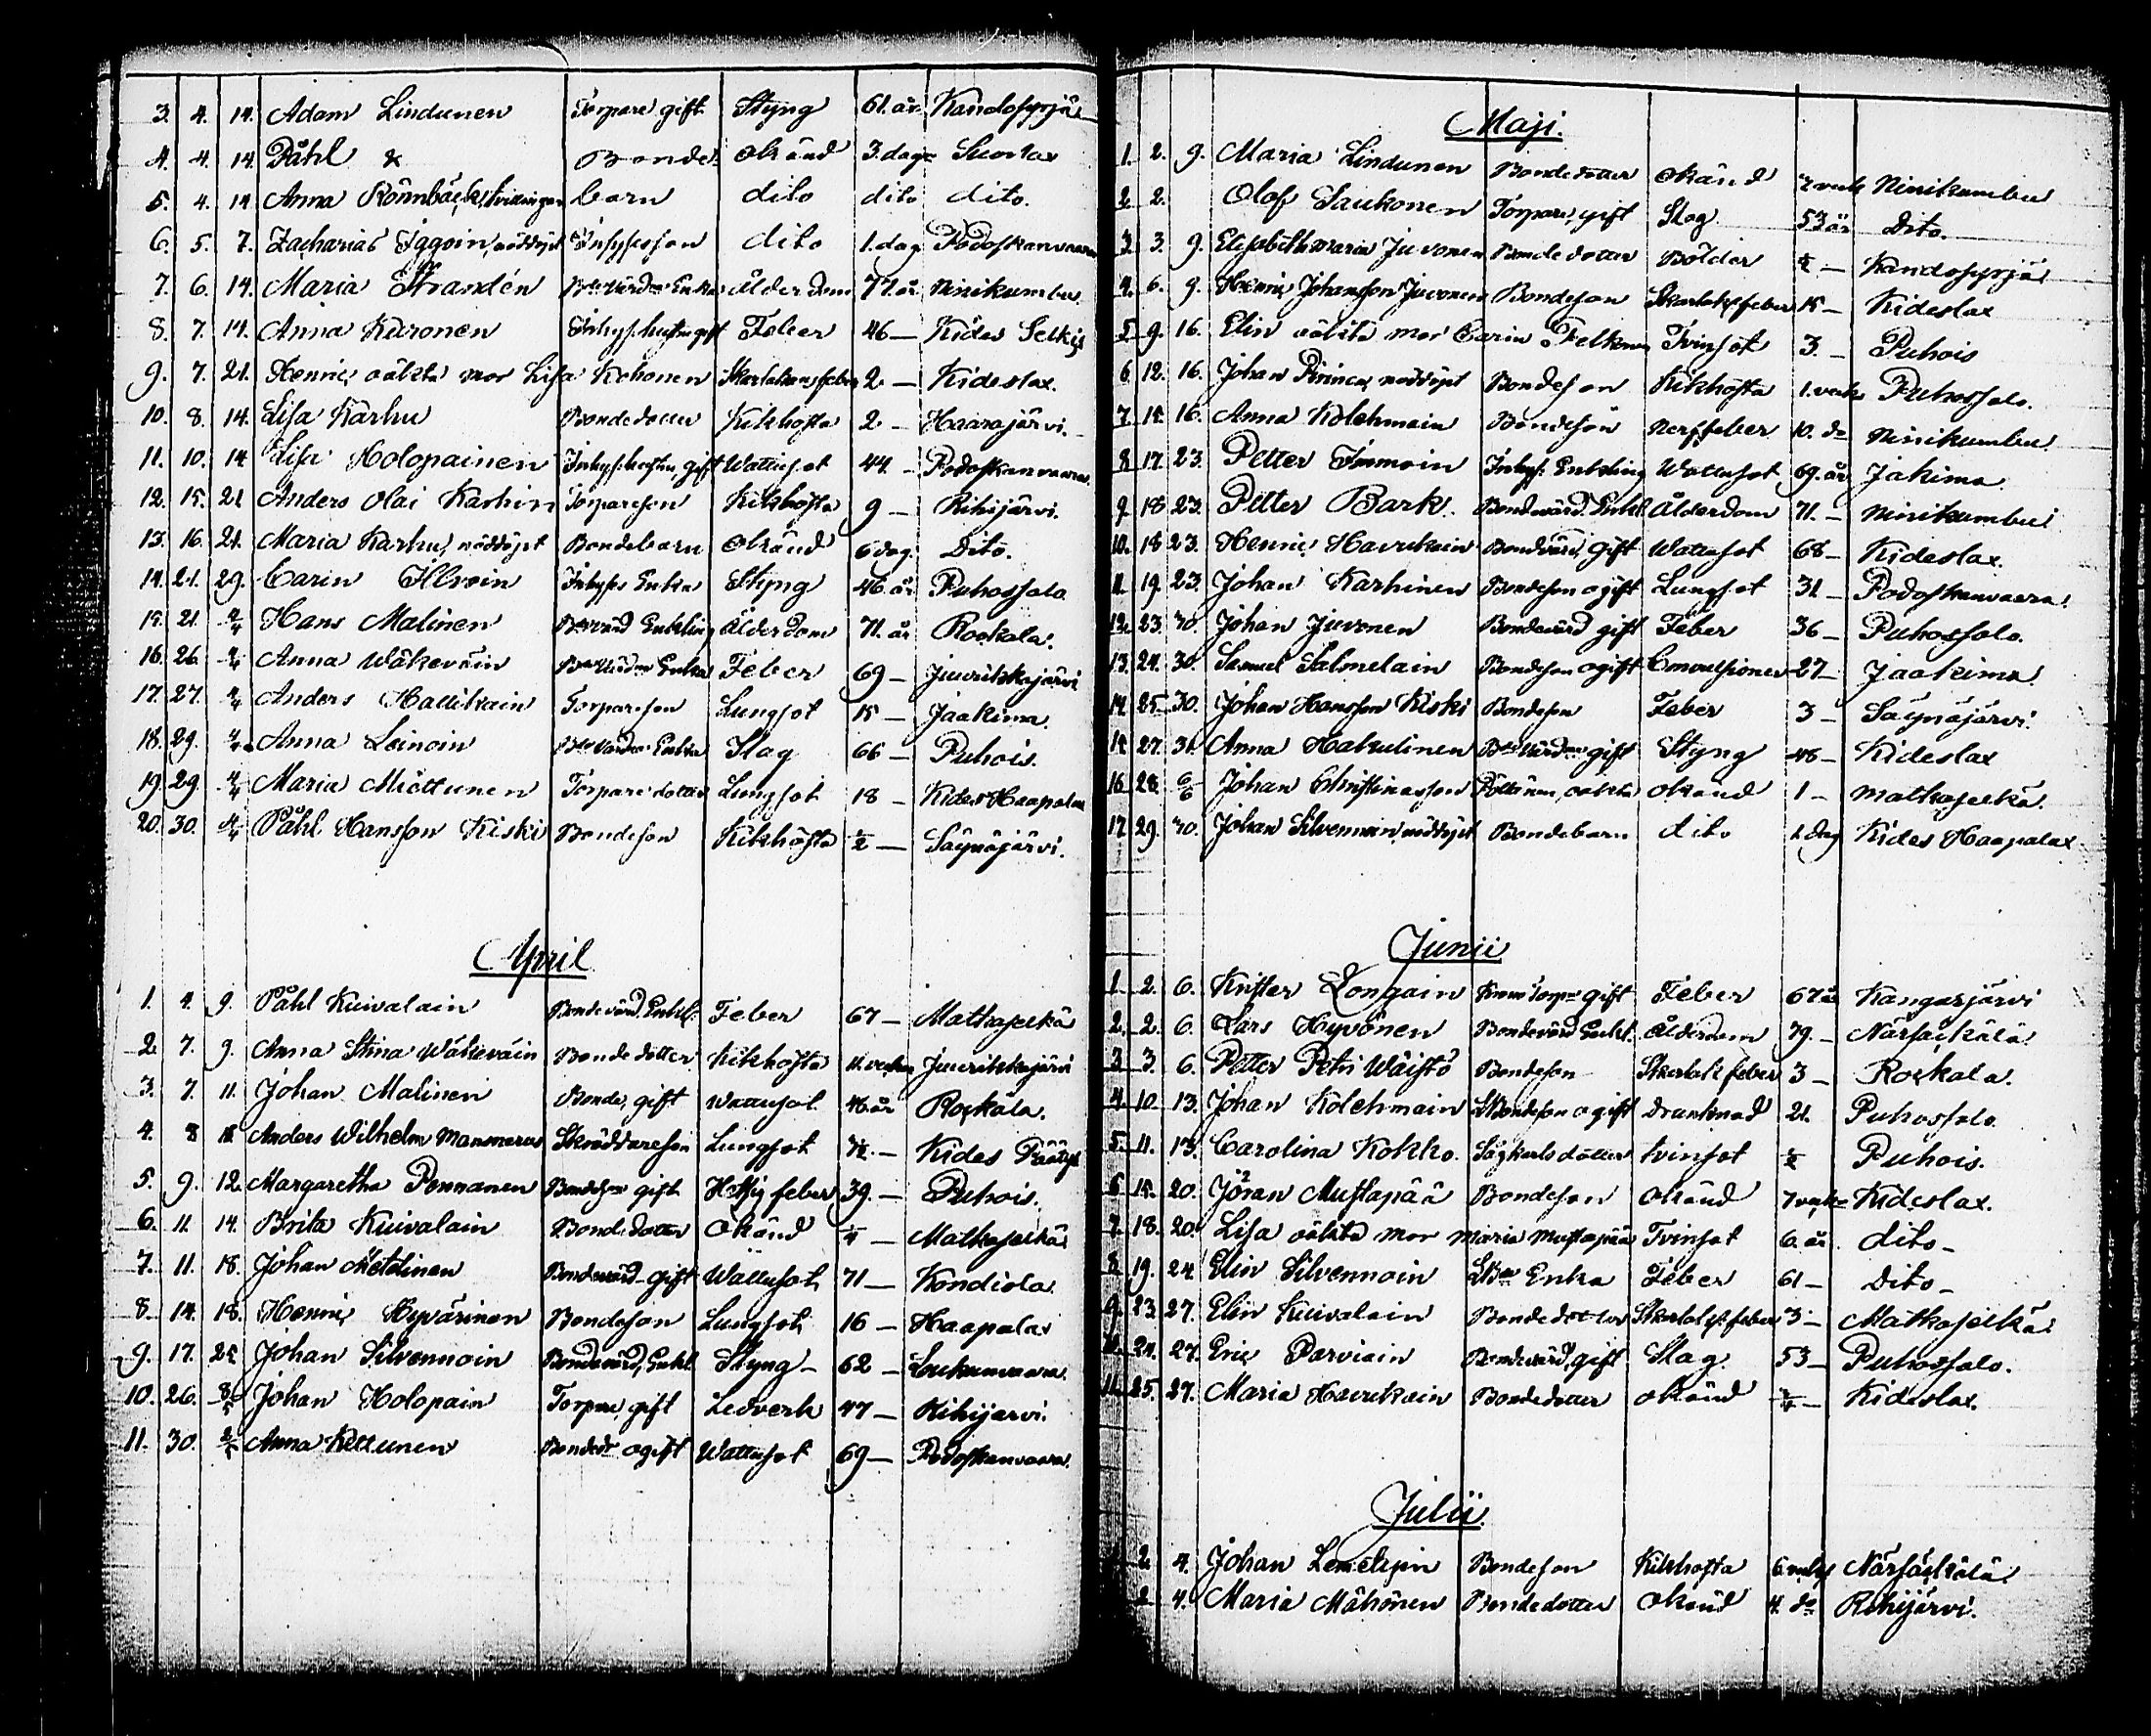 3. 4. 14. Adam Lindunen Torpare gift Styng 61. år. Kandosyrjä
4. 4. 14. Påhl & Bonde okänd 3. dagr Suorlax
5. 4. 14 Anna Rönnbäck, tvillingar barn dito dito dito.
6. 5. 7. Zacharias Iggoin, nöddöpt Inhysesson dito 1. dag Podoskanvaara
7. 6. 14. Maria Strandén Enka ålderdom 77. år Niinikumbu
8. 7. 14. Anna Karonen gift Feber 46 — Kides Selkis
9. 7. 21. Henric oäkta mor Lisa Kohonen Skarlakansfeber 2 — Kideslax.
10. 8. 14. Lisa Karhu Bondedotter Kikhosta 2 — Haarajärvi.
11. 10. 14 Lisa Holopainen gift Wattusot 44 — Podoskanvaara.
12. 15. 21 Anders Olai Karhin Torpareson Kikhosta 9 — Rihijärvi.
13. 16. 21. Maria Karhu, nöddöpt Bondebarn okänd 6 dag. Dito.
14. 21. 29. Carin Illvoin Inhyses Enka Styng 46. år Puhossalo
15. 21. 4/4 Hans Malinen Enkling Ålderdom 71. år Rockala.
16. 26. 4/4 Anna Wäkeväin Enka Feber 69 — Juurikkajärvi
17. 27. 4/4 Anders Hallikain Torpareson Lungsot 15 — Jaakima.
18. 29. 4/4 Anna Leinoin Enka Slag 66 — Puhois.
19. 29. 4/4 Maria Miettunen Torparedotter Lungsot 18 — Kides Haapalax
20. 30. 4/4 Påhl Hansson Kiski Bondeson Kikhosta 1/2 — Säynäjärvi.
April
1. 4. 9. Påhl Kuivalain Bondevärd, Enkl. Feber 67 — Matkaselkä
2. 7. 9. Anna Stina Wäkeväin Bondedotter Kikhosta 11. veckor Juurikkajärvi
3. 7. 11. Johan Malinen Bonde, gift Wattusot 46 år Rockala.
4. 8 18. Anders Wilhelm Mannerus Skräddareson Lungsot Kides Päätye
5. 9. 12. Margaretha Pennanen gift Hettsig feber 39. — Puhois.
6. 11. 14. Brita Kuivalain Bondedotter Okänd 1/4 — Matkaselkä
7. 11. 18. Johan Metelinen Bondevärd gift Wattusot 71 — Kondiola.
8. 14. 18. Henric Hyvärinen Bondeson Lungsot 16 — Haapalax
9. 17. 25 Johan Silvennoin Bondevärd, Enkl. Styng — 62 — Loukunvaara.
10. 26. Johan Holopain Torpare, gift Ledverk 47 — Rihijärvi.
11. 30. 2/5 Anna Kettunen ogift Wattusot 69 — Podoskanvaara.
Maji.
1. 2. 9. Maria Lindunen Bondedotter okänd veck Niinikumbu
2. 2. Olof Saukonen Torpare, gift Slag 53 år Dito.
3. 3. 9. Elisabeth Maria Juvonen Bondedotter Bölder — Kandosyrjä
4. 6. 9. Henric Johansson Juvonen Bondeson Skarlaksfeber 15 — Kideslax
5. 9. 16. Elin oäkta mor Carin Felkonen Tvinsot 3. — Puhois
6. 12. 16. Johan Pirinen, nöddöpt Bondeson Kikhosta 1. veck Puhossalo.
7. 14. 16. Anna Kolehmain Bondeson Nerffeber 10. do Niinikumbu
8. 17. 23. Petter Immoin Inhys. Enkling Wattusot 69. år Jakima
9. 18 23. Petter Bark. Bondevärd. Enkl. Ålderdom 71. — Niinikumbu
10. 18 23. Henric Havukain Bondvärd, gift Wattusot 68 — Kideslax.
11. 19. 23. Johan Karhinen Bondeson ogift Lungsot 31 — Podoskanvaara.
12. 23. 30. Johan Juvonen Bondevärd gift Feber 36 — Puhossalo.
13. 24. 30. Samuel Salmelain Bondeson ogift Convulsioner 27 — Jaakima
14 25. 30. Johan Hansson Kiski Bondeson Feber 3 — Säynäjärvi.
15 27. 31. Anna Hakulinen gift Styng 48 — Kideslax
16 28. 6/6 Johan Christinasson oäkta okänd 1 — Matkaselkä.
17 29. 30. Johan Silvennoin, nöddöpt Bondebarn dito 1. dag Kides Haapalax
Junii
1. 2. 6. Krister Longain gift Feber 67 år Kangasjärvi
2. 2. 6. Lars Hyvönen Bondevärd Enkl. Ålderdom 79. — Närsäkkälä.
3 3. 6. Petter Petri Wäistö Bondeson Skarlaks feber 3 — Rockala.
4 10. 13. Johan Kolehmain Bondeson ogift drunknad 21. Puhossalo.
5. 11. 13. Carolina Kokko. Sågkarls dotter tvinsot 1/2 Puhois.
6 15. 20. Jöran Mustapää Bondeson okänd 7 veckr Kideslax.
7. 18. 20. Lisa oäkta mor Maria Mustapää Tvinsot 6. år dito —
8 19. 24. Elin Silvennoin Enka Feber 61 — Dito —
9. 23. 27. Elin Kuivalain Bondedotter Skarlaksfeber 3 — Matkaselkä
10. 24. 27. Eric Parviain Bondevärd, gift Slag. 53 — Puhossalo.
11. 25. 27. Maria Havukain Bondedotter okänd — Kideslax.
Julii.
2 4. Johan Bondeson Kikhosta 6. Närsäkkälä.
2 4. Maria Mähönen Bondedotter okänd 4. do Rihijärvi.